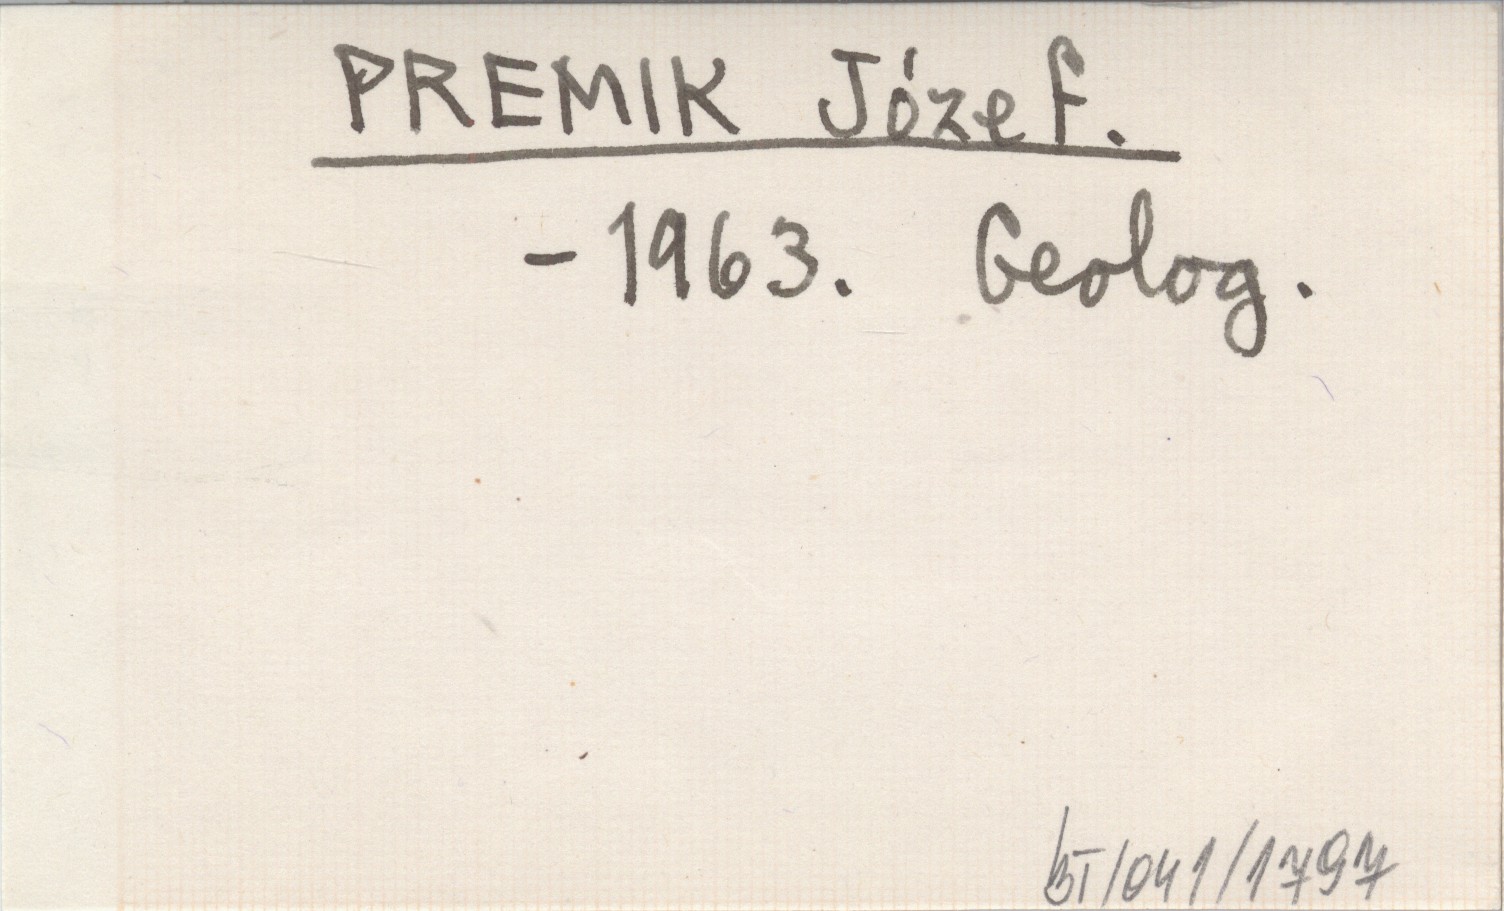 PREMIK Józef.
- 1963. Geolog.
BT/041/1797